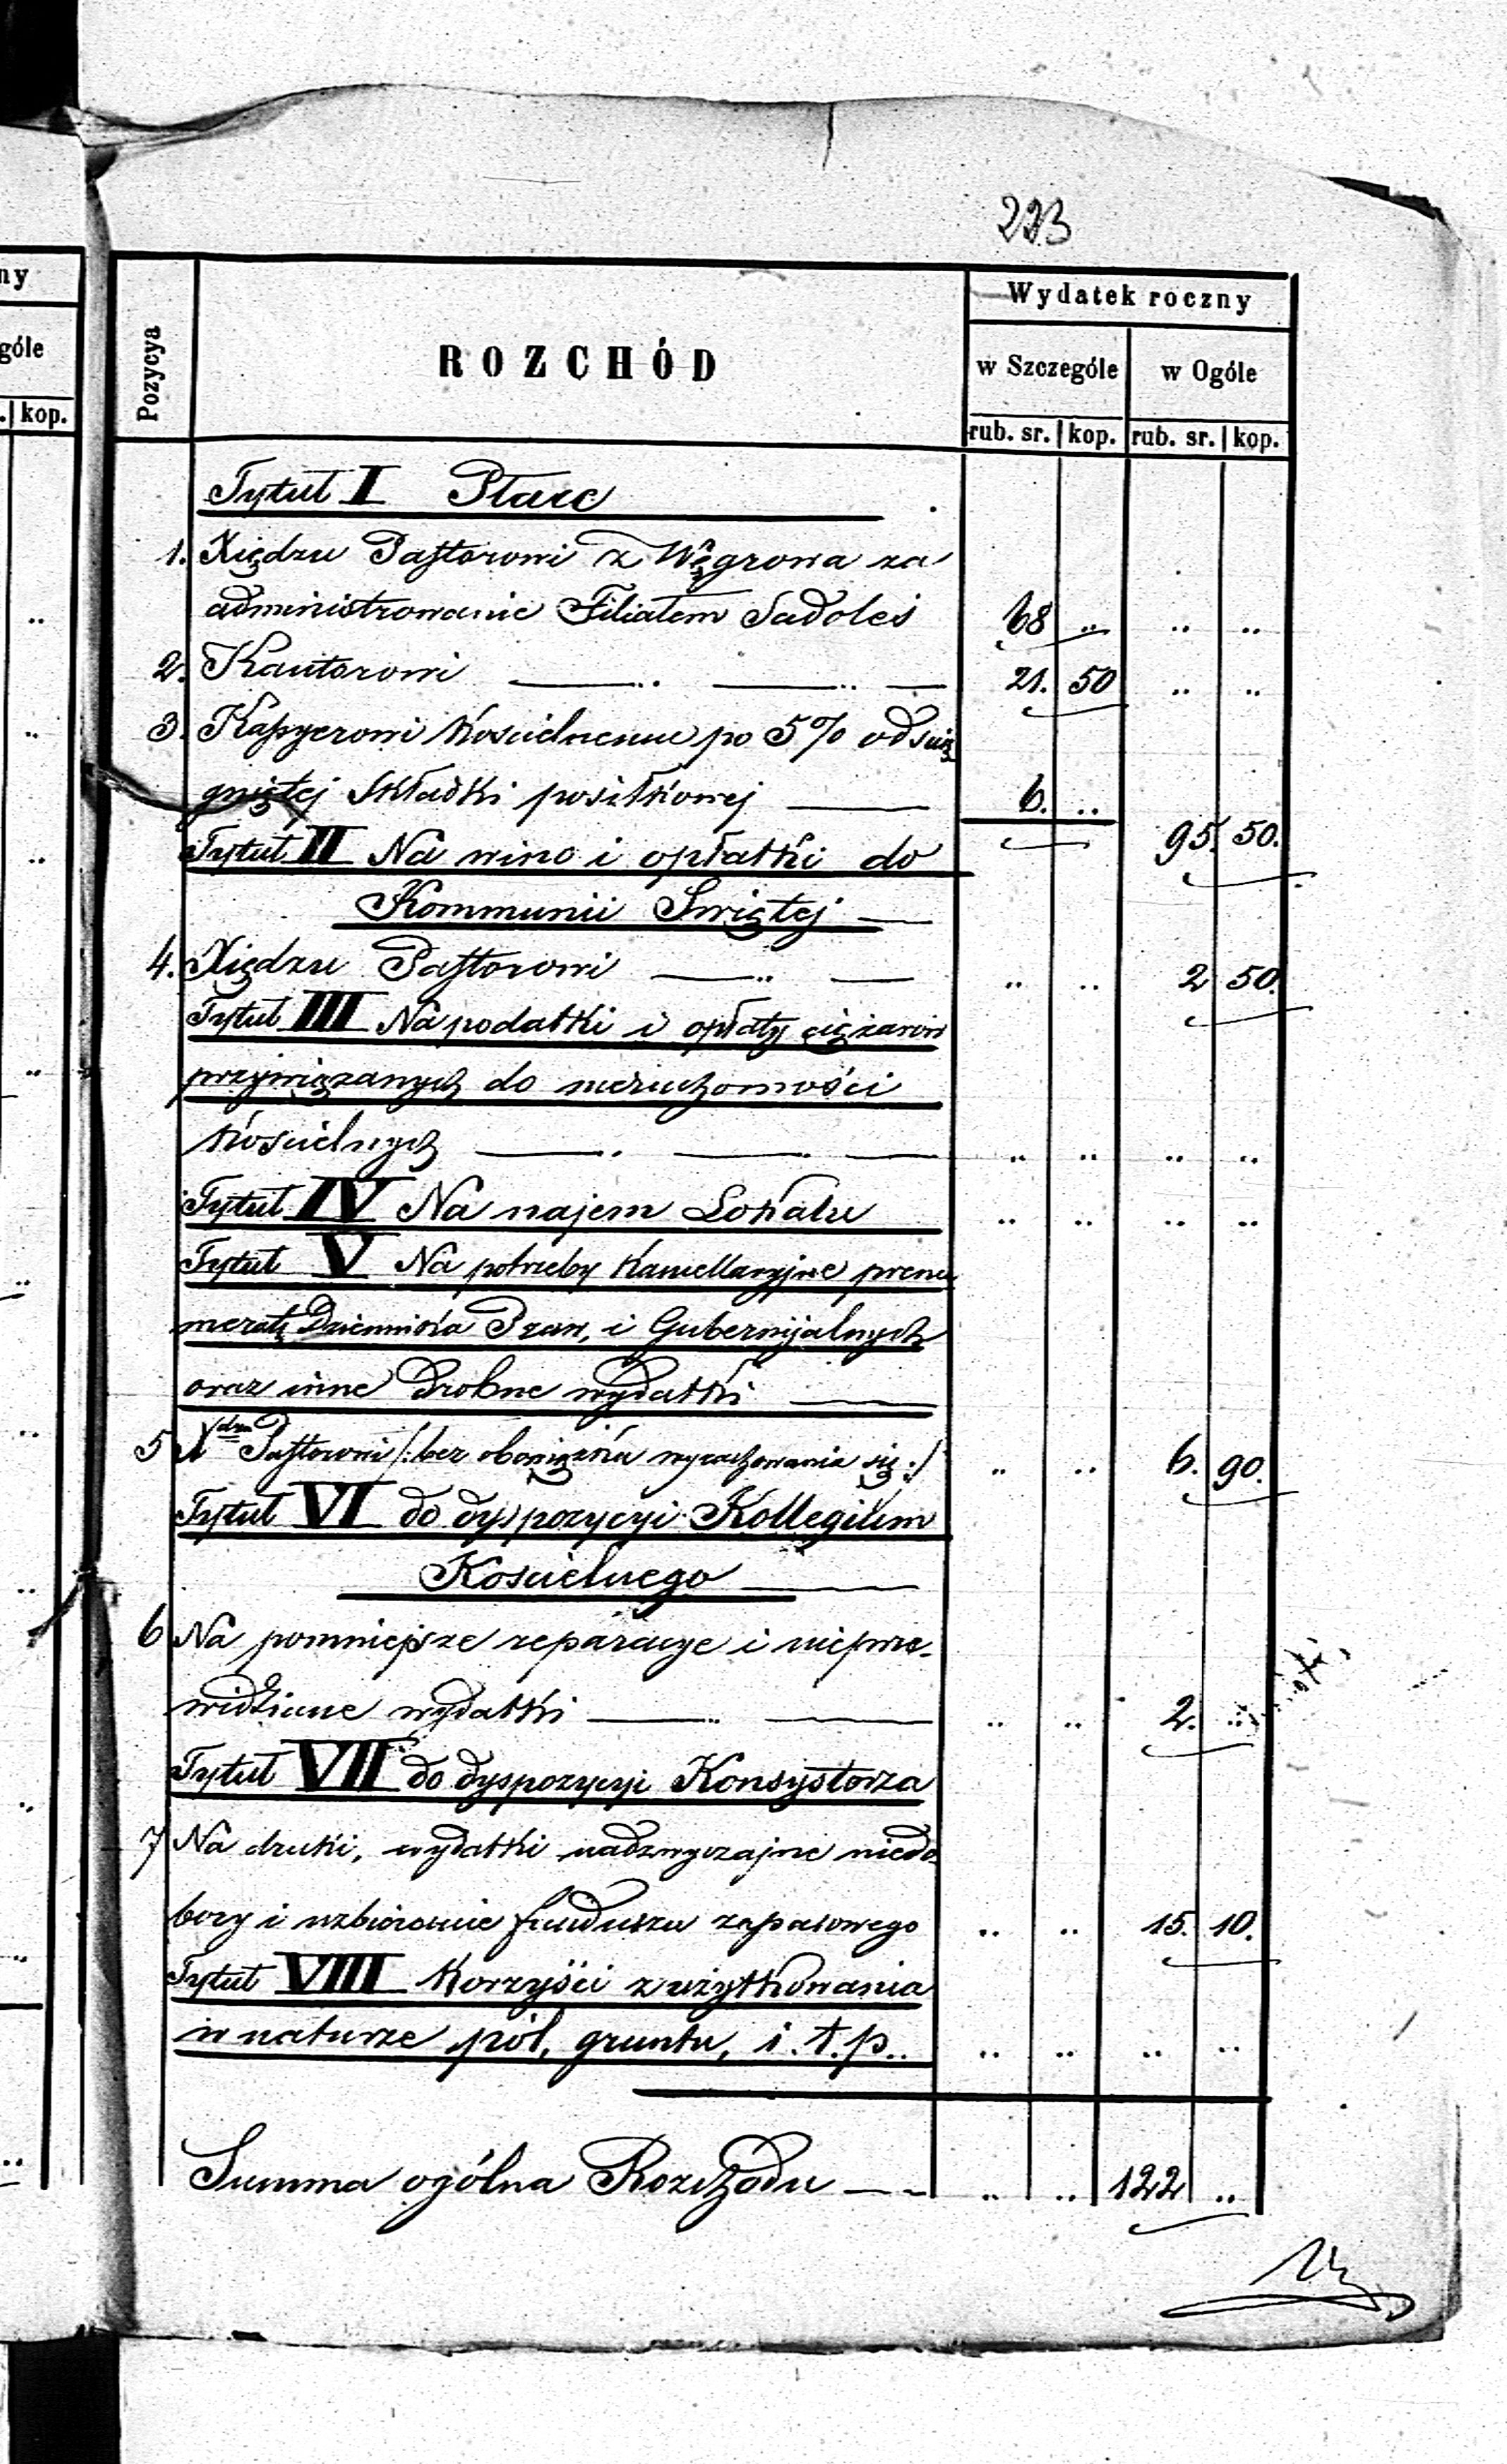 223
ny
góle
kop.
Pozycya
ROZCHÓD
Wydatek roczny
w Szczególe w Ogóle
rub. sr. kop. rub. sr. kop.
Tytuł I Płace
1. Xiędzu Pastorowi z Węgrowa za
administrowanie Filiałem Sadoleś 68 .. .. ..
2. Kantorowi 21. 50 .. ..
3. Kassyerowi Kościelnemu po 5% od ścią
gniętej Składki posiłkowej 6. ..
95. 50.
Tytuł II Na wino i opłatki do
Kommunii Swiętej
4. Xiędzu Pastorowi .. .. 2 50.
Tytuł III Na podatki i opłaty ciężarów
przywiązanych do nieruchomości
Kościelnych .. .. .. ..
Tytuł IV Na najem Lokalu .. .. .. ..
Tytuł V Na potrzeby Kancellaryjne prenu
meratę Dziennika Praw, i Gubernijalnych
oraz inne drobne wydatki
5 Xdzu Pastorowi /: bez obowiązku wyrachowania się :/ .. .. 6. 90.
Tytuł VI do dyspozycyi Kollegium
Kościelnego
6 Na pomniejsze reparacye i nieprze-
widziane wydatki .. .. 2. ..
Tytuł VII do dyspozycyi Konsystorza
7 Na druki, wydatki nadzwyczajne niedo
bory i uzbieranie funduszu zapasowego .. .. 15. 10.
Tytuł VIII Korzyści z użytkowania
w naturze pól, gruntu, i. t. p.. .. .. .. ..
Summa ogólna Rozchodu .. .. 122 ..